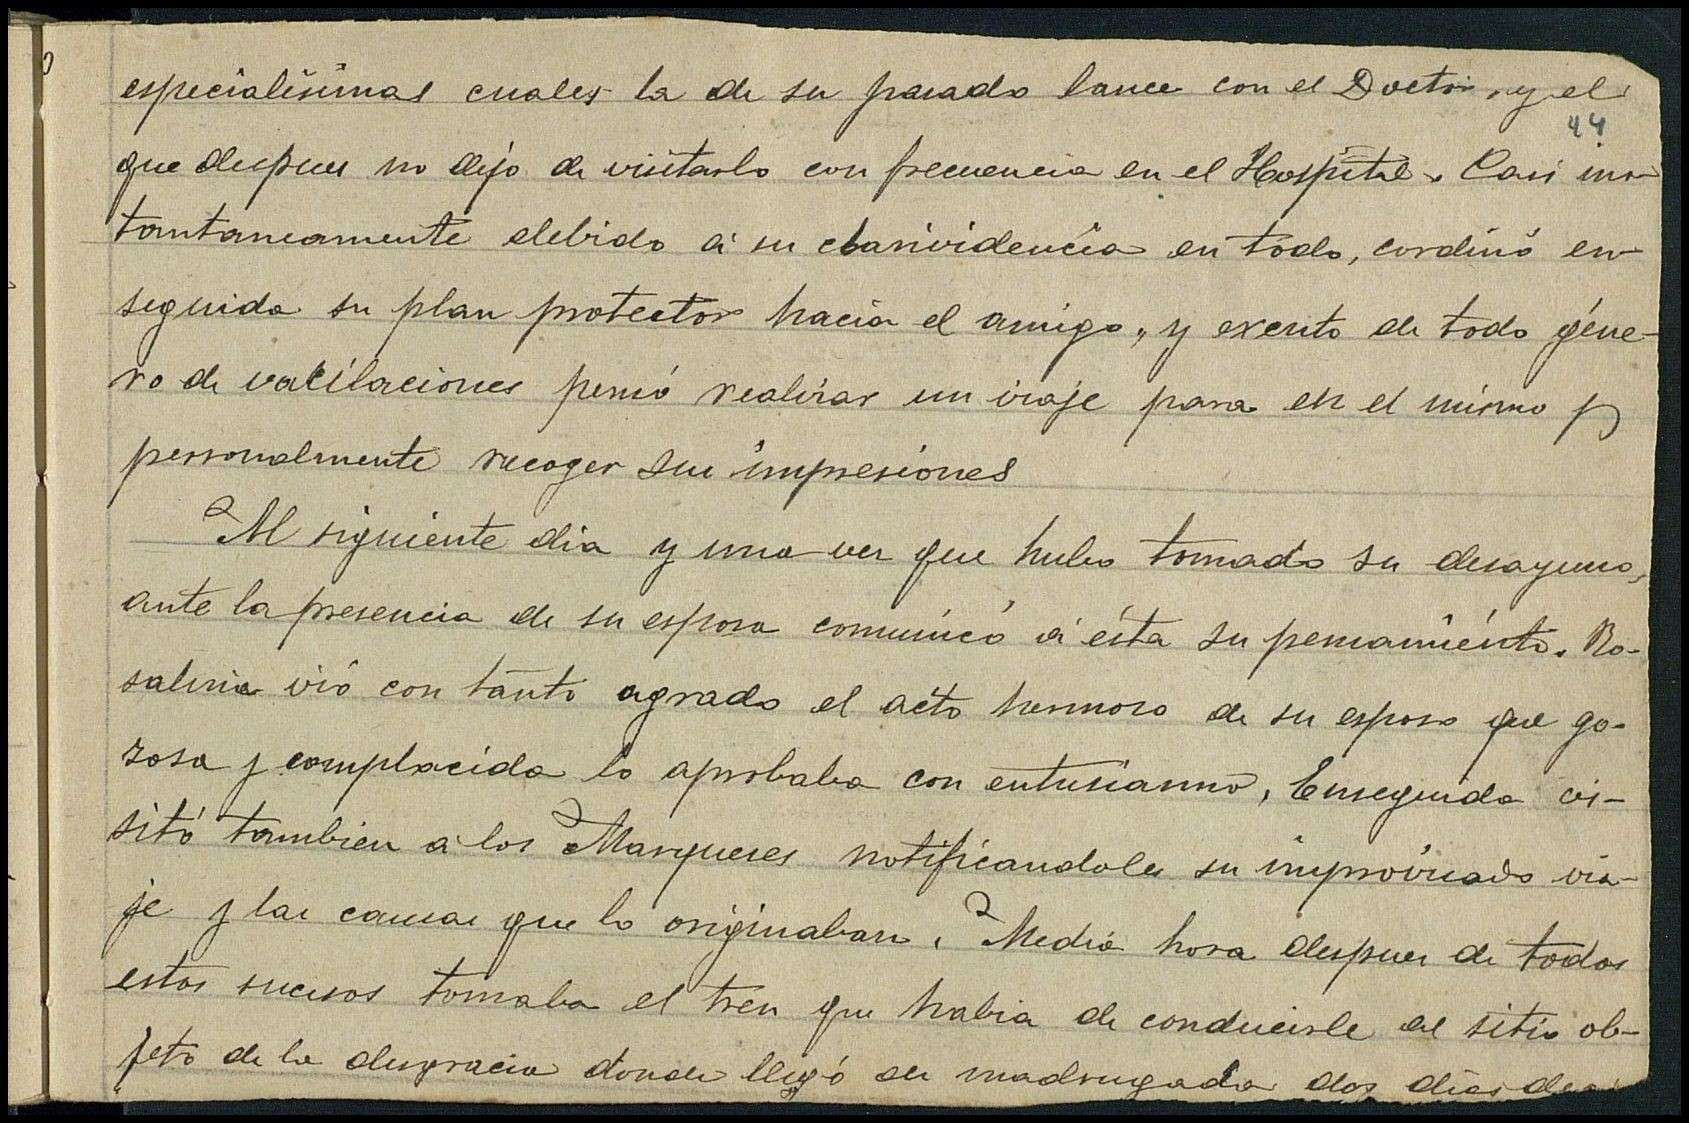 especialisimas cuales la de su pasado lance con el Doctor, y el
44
que despues no dejo de visitarlo con frecuencia en el Hospital. Casi ins-
tantaneamente debido á su clarividencia en todo, cordinó en-
seguida su plan protector hacia el amigo, y exento de todo géne-
ro de vacilaciones pensó realizar un viaje para en el mismo
personalmente recoger sus impresiones
Al siguiente dia y una vez que hubo tomado su desayuno,
ante la presencia de su esposa comunicó á ésta su pensamiento. Ro-
salina vió con tanto agrado el acto hermoso de su esposo que go-
zosa y complacida lo aprobaba con entusiasmo, Enseguida vi-
sitó tambien a los Marqueses notificandoles su improvisado via-
je y las causas que lo originaban. Media hora despues de todos
estos sucesos tomaba el tren que habia de conducirle al sitio ob-
jeto de la desgracia donde llegó de madrugada dos dias